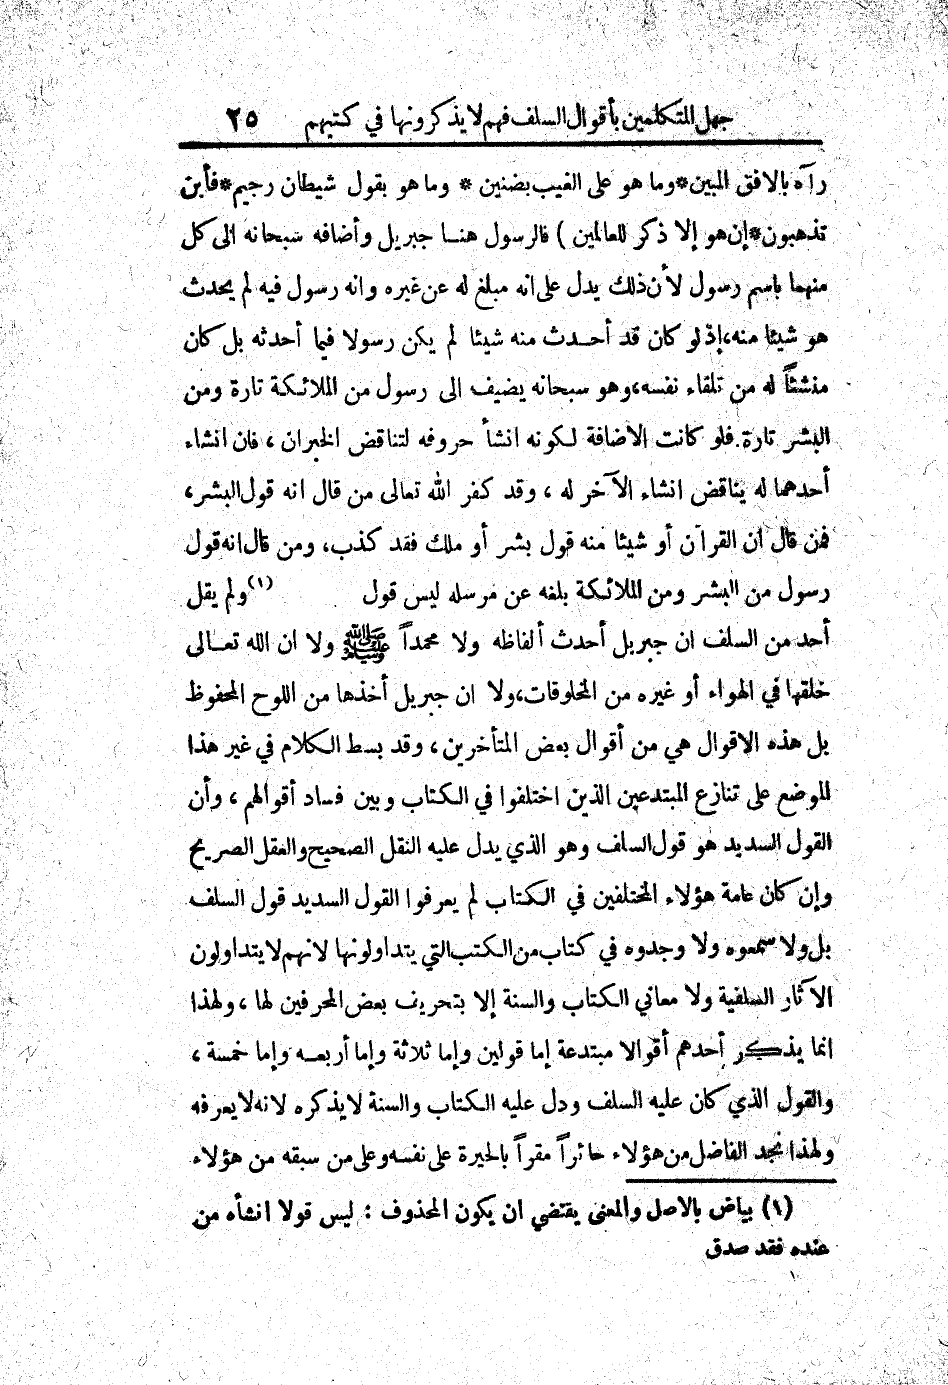 جهل المتكلمين بأقوال السلف فهم لا يذكرونها في كتبهم ٢٥
رآه بالافق المبين*وما هو على الغيب بضنين * وما هو بقول شيطان رجيم*فأين
تذهبون*إن هو إلا ذكر للعالمين ) فالرسول هنا جبريل وأضافه سبحانه الى كل
منهما باسم رسول لأن ذلك يدل على انه مبلغ له عن غيره وانه رسول فيه لم يحدث
هو شيئا منه،إذ لو كان قد أحدث منه شيئا لم يكن رسولا فيما أحدثه بل كان
منشئاً له من تلقاء نفسه،وهو سبحانه يضيف الى رسول من الملائكة تارة ومن
البشر تارة.فلو كانت الاضافة لكونه انشأ حروفه لتناقض الخبران ، فان انشاء
أحدهما له يناقض انشاء الآخر له ، وقد كفر الله تعالى من قال انه قول البشر،
فمن قال ان القرآن أو شيئا منه قول بشر أو ملك فقد كذب، ومن قال انه قول
رسول من البشر ومن الملائكة بلغه عن مرسله ليس قول (١) ولم يقل
أحد من السلف ان جبريل أحدث ألفاظه ولا محمداً ﷺ ولا ان الله تعالى
خلقها في الهواء أو غيره من المخلوقات،ولا ان جبريل أخذها من اللوح المحفوظ
بل هذه الاقوال هي من أقوال بعض المتأخرين ، وقد بسط الكلام في غير هذا
الموضع على تنازع المبتدعين الذين اختلفوا في الكتاب وبين فساد أقوالهم ، وأن
القول السديد هو قول السلف وهو الذي يدل عليه النقل الصحيح والعقل الصريح
وإن كان عامة هؤلاء المختلفين في الكتاب لم يعرفوا القول السديد قول السلف
بل ولا سمعوه ولا وجدوه في كتاب من الكتب التي يتداولونها لانهم لا يتداولون
الآثار السلفية ولا معاني الكتاب والسنة إلا بتحريف بعض المحرفين لها ، ولهذا
انما يذكر أحدهم أقوالا مبتدعة إما قولين وإما ثلاثة وإما أربعة وإما خمسة ،
والقول الذي كان عليه السلف ودل عليه الكتاب والسنة لا يذكره لانه لا يعرفه
ولهذا نجد الفاضل من هؤلاء حائراً مقراً بالحيرة على نفسه وعلى من سبقه من هؤلاء
(١) بياض بالاصل والمعنى يقتضي ان يكون المحذوف : ليس قولا انشأه من
عنده فقد صدق